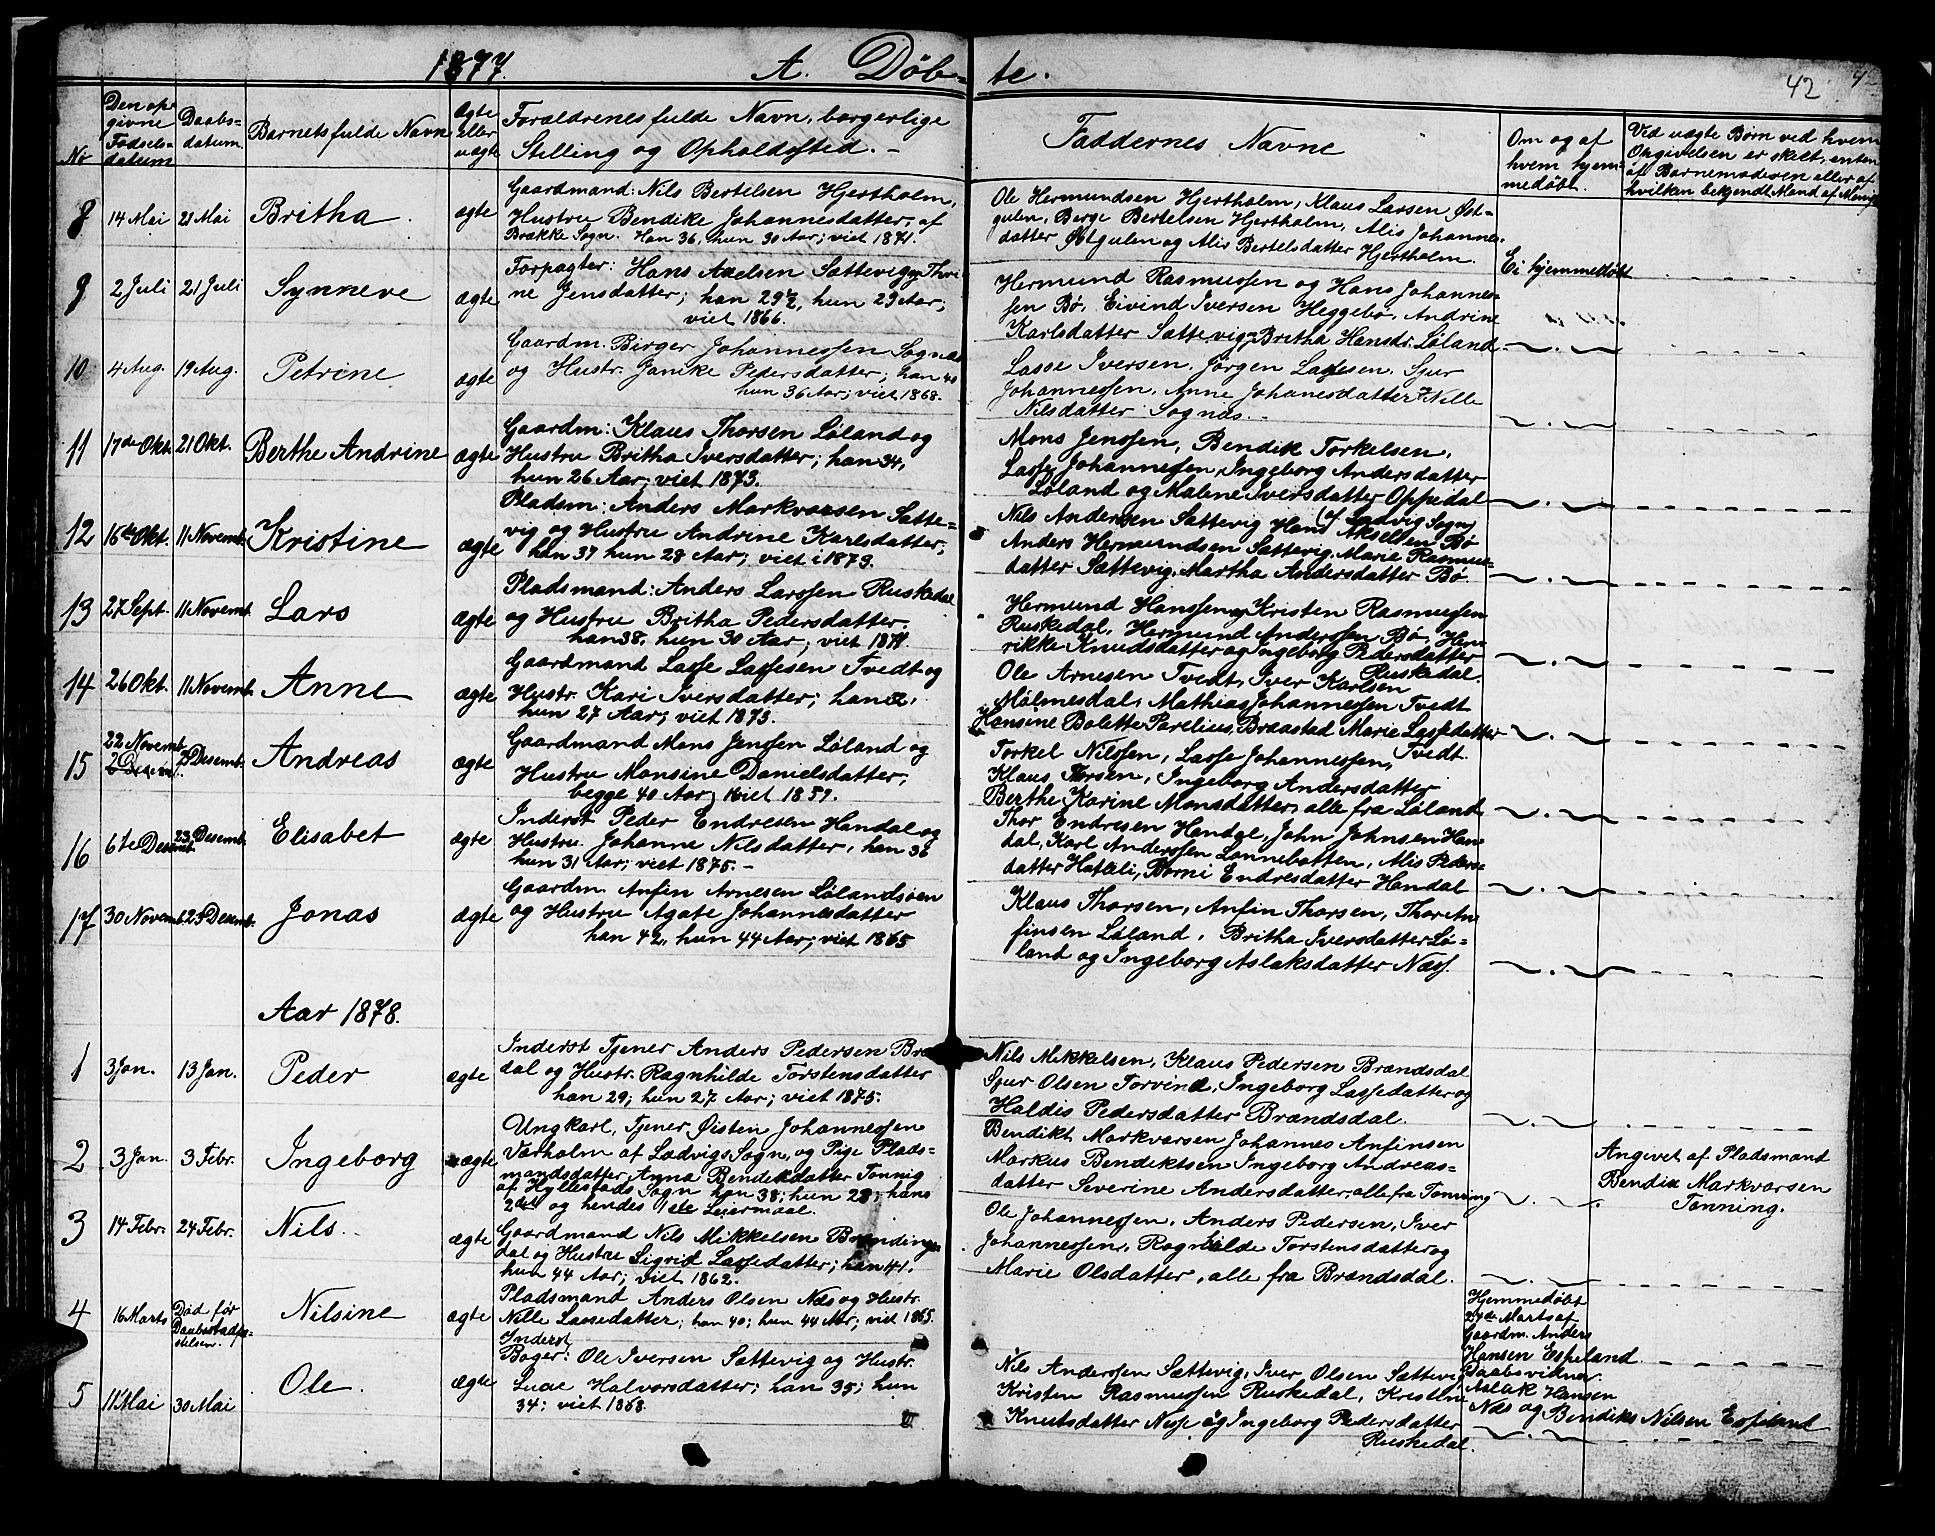 1877. A. Døb- te. 42
No
Den op-
givne
Fødsels-
datum
Daabs-
datum.
Barnets fulde Navn
Ægte
eller
uægte
Forældrenes fulde Navn, borgerlige
Stilling og Opholdssted. -
Faddernes Navne
Om og af
hvem hjem-
medøbt.
Ved uægte Børn ved hvem
Opgivelsen er skeet, enten
af Barnemoderen eller af
hvilken bekjendt Mand af Menig
8 14 Mai 21 Mai Britha. ægte
Gaardmand: Nils Bertelsen Hjertholm,
Hustru Bendike Johannesdatter, af
Brække Sogn. Han 36, hun 30 Aar; viet 1871.
Ole Hermundsen Hjertholm, Klaus Larsen Øst-
gulen, Berge Bertelsen Hjertholm, Alis Johannes-
datter Østgulen og Alis Bertelsdatter Hjertholm.
Ei hjemmedøbt
9 2 Juli 21 Juli Synneve ægte
Forpagter: Hans Axelsen Sættevig og Thri-
ne Jensdatter; han 29½, hun 29 Aar;
viet 1866.
Hermund Rasmussen og Hans Johannes-
sen Bø, Eivind Iversen Heggebø, Andrine
Karlsdatter Sættevig, Britha Hansdr. Løland
10 4 Aug. 19 Aug. Petrine ægte
Gaardm. Birger Johannessen Sognæs
og Hustr. Janike Pedersdatter; han 40
hun 36 Aar; viet 1868.
Lasse Iversen, Jørgen Lassesen, Sjur
Johannessen, Anne Johanesdatter, Nille
Nilsdatter Sognæs.
11 17de Okt. 21 Okt. Berthe Andrine ægte
Gaardm: Klaus Thorsen Løland og
Hustru Britha Iversdatter; han 34,
hun 26 Aar; viet 1873.
Mons Jenssen, Bendik Torkelsen,
Lasse Johannessen, Ingeborg Andersdatter
Løland og Malene Iversdatter Oppedal
12 16de Okt. 11 Novemb. Kristine ægte
Pladsm: Anders Markvorsen Sætte-
vig og Hustru Andrine Karlsdatter;
han 37 hun 28 Aar; viet i 1873.
(af Ladvig Sogn)
Nils Andersen Sættevig Hans Akselsen Bø
Anders Hermundsen Sættevig. Marie Rasmus-
datter Sættevig, Martha Andersdatter Bø.
13 27 Sept. 11 Novemb. Lars ægte
Pladsmand: Anders Larssen Ruskedal
og Hustru Britha Pedersdatter.
han 38, hun 30 Aar; viet 1871.
Hermund Hanssen og Kristen Rasmussen
Ruskedal, Hermund Anderssen Bø, Hen-
rikke Knudsdatter og Ingeborg Pedersdatter
Ruskedal.
14 26 Okt. 11 Novemb. Anne ægte
Gaardmand Lasse Lassesen Tvedt og
Hustr. Kari Iversdatter; han 32,
hun 27 Aar; viet 1875.
Ole Arnesen Tvedt, Iver Karlsen
Mølmesdal, Mathias Johannessen Tvedt
Hansine Bolette Parelius Braastad Marie Lassedatter
Tvedt.
15 22 Novemb. Desemb. Andreas ægte
Gaardmand Mons Jenssen Løland og
Hustru Monsine Danielsdatter;
begge 40 Aar; viet 1859.
Torkel Nilssen, Lasse Johannessen,
Klaus Thorsen, Ingeborg Andersdatter
Berthe Karine Monsdatter, alle fra Løland
16 6te Desemb. 23 Desemb. Elisabet ægte
Inderst Peder Endresen Handal og
Hustru Johanne Nilsdatter, han 36
hun 31 Aar; viet 1875. -
Thor Endresen Handal, John Johnsen Han-
dal, Karl Anderssen Lonnebotten, Alis Peders-
datter Hatleli, Børni Endresdatter Handal
17 30 Novemb. 29 Desemb. Jonas ægte
Gaardm Anfin Arnesen Lølandsøen
og Hustru Agate Johannesdatter
han 42, hun 44 Aar; viet 1865
Klaus Thorsen, Anfin Thorsen, Thor An-
finsen Løland, Britha Iversdatter Lø-
land og Ingeborg Aslaksdatter Næss.
Aar 1878.
1 3 Jan. 13 Jan. Peder ægte
Inderst Tjener Anders Pedersen Bræ
dal og Hustr. Ragnhilde Torstensdatter
han 29; hun 27 Aar; viet 1875.
Nils Mikkelsen, Klaus Pedersen Brændsdal
Sjur Olsen Torvind, Ingeborg Lassedatter og
Haldis Pedersdatter Brændsdal.
2 3 Jan. 3 Febr. Ingeborg uægte
Ungkarl, Tjener Øisten Johannessen
Værholm af Ladvigs Sogn, og Pige Plads-
mandsdatter Anna Bendiksdatter Tønnig
af Hyllestads Sogn han 38; hun 28; hans
2det og hendes 1ste Leiermaal.
Bendikt Markvarsen Johannes Anfinsen
Markus Bendiktsen Ingeborg Andreas-
datter Severine Andersdatter, alle fra Tønning
Angivet af Pladsmand
Bendix Markvarsen
Tønning.
3 14 Febr. 24 Febr. Nils. ægte
Gaardmand Nils Mikkelsen Brændings-
dal og Hustru Sigrid Lassedatter; han 41,
hun 44 Aar; viet 1862.
Ole Johannessen, Anders Pedersen, Iver
Johannessen, Ragnhilde Torstensdatter og
Marie Olsdatter, alle fra Brændsdal.
4 16 Marts Død før
Daabsstadfæ-
stelsen. Nilsine ægte
Pladsmand Anders Olsen Næs og Hustr.
Nille Lassedatter; han 40; hun 44 Aar; viet 1865.
Hjemmedøbt
27de Marts af
Gaardm. Anders
Hansen Espeland.
Daabsvidner
Aslak Hansen
Næs og Bendiks Nilsen Espeland
5 11 Mai 30 Mai Ole. ægte
Inderst
Bøger: Ole Iversen Sættevig og Hustr.
Lucie Halvorsdatter; han 35; hun
34; viet 1868.
Nils Anderssen Sættevig, Iver Olsen Sættevig
Kristen Rasmussen Ruskedal, Kristine
Knutsdatter Nesse og Ingeborg Pedersdatter
Ruskedal.